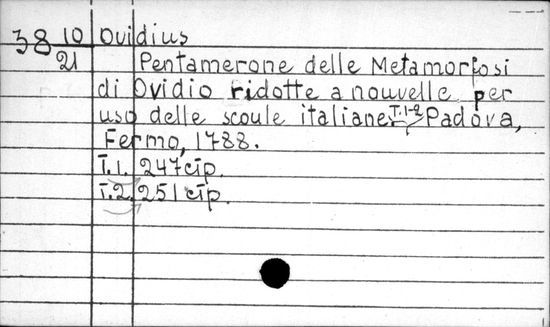 38 10/21 Ovidius
Pentamerone delle Metamorfosi
di Ovidio ridotte a nouvelle per
uso delle scoule italiane. T.1-2 Padova,
Fermo, 1788.
T.1. 247 стр.
T.2. 251 стр.